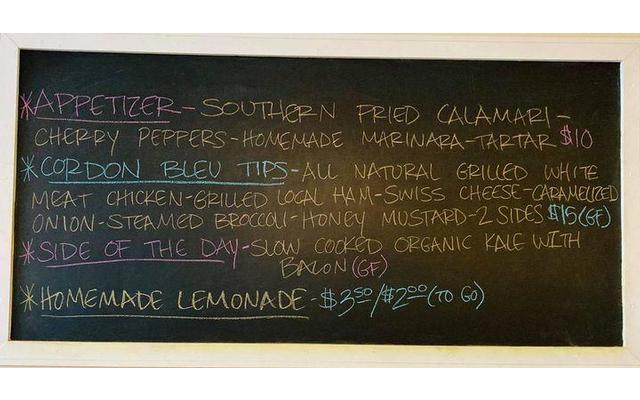 *APPETIZER-SOUTHERN FRIED CALAMARI-
CHERRY PEPPERS-HOMEMADE MARINARA-TARTAR $10
*CORDON BLEU TIPS-ALL NATURAL GRILLED WHITE
MEAT CHICKEN-GRILLED LOCAL HAM-SWISS CHEESE-CARAMELIZED
ONION-STEAMED BROCCOLI-HONEY MUSTARD-2 SIDES $15(GF)
*SIDE OF THE DAY-SLOW COOKED ORGANIC KALE WITH
BACON(GF)
*HOMEMADE LEMONADE-$3.50/$2.00(TO GO)